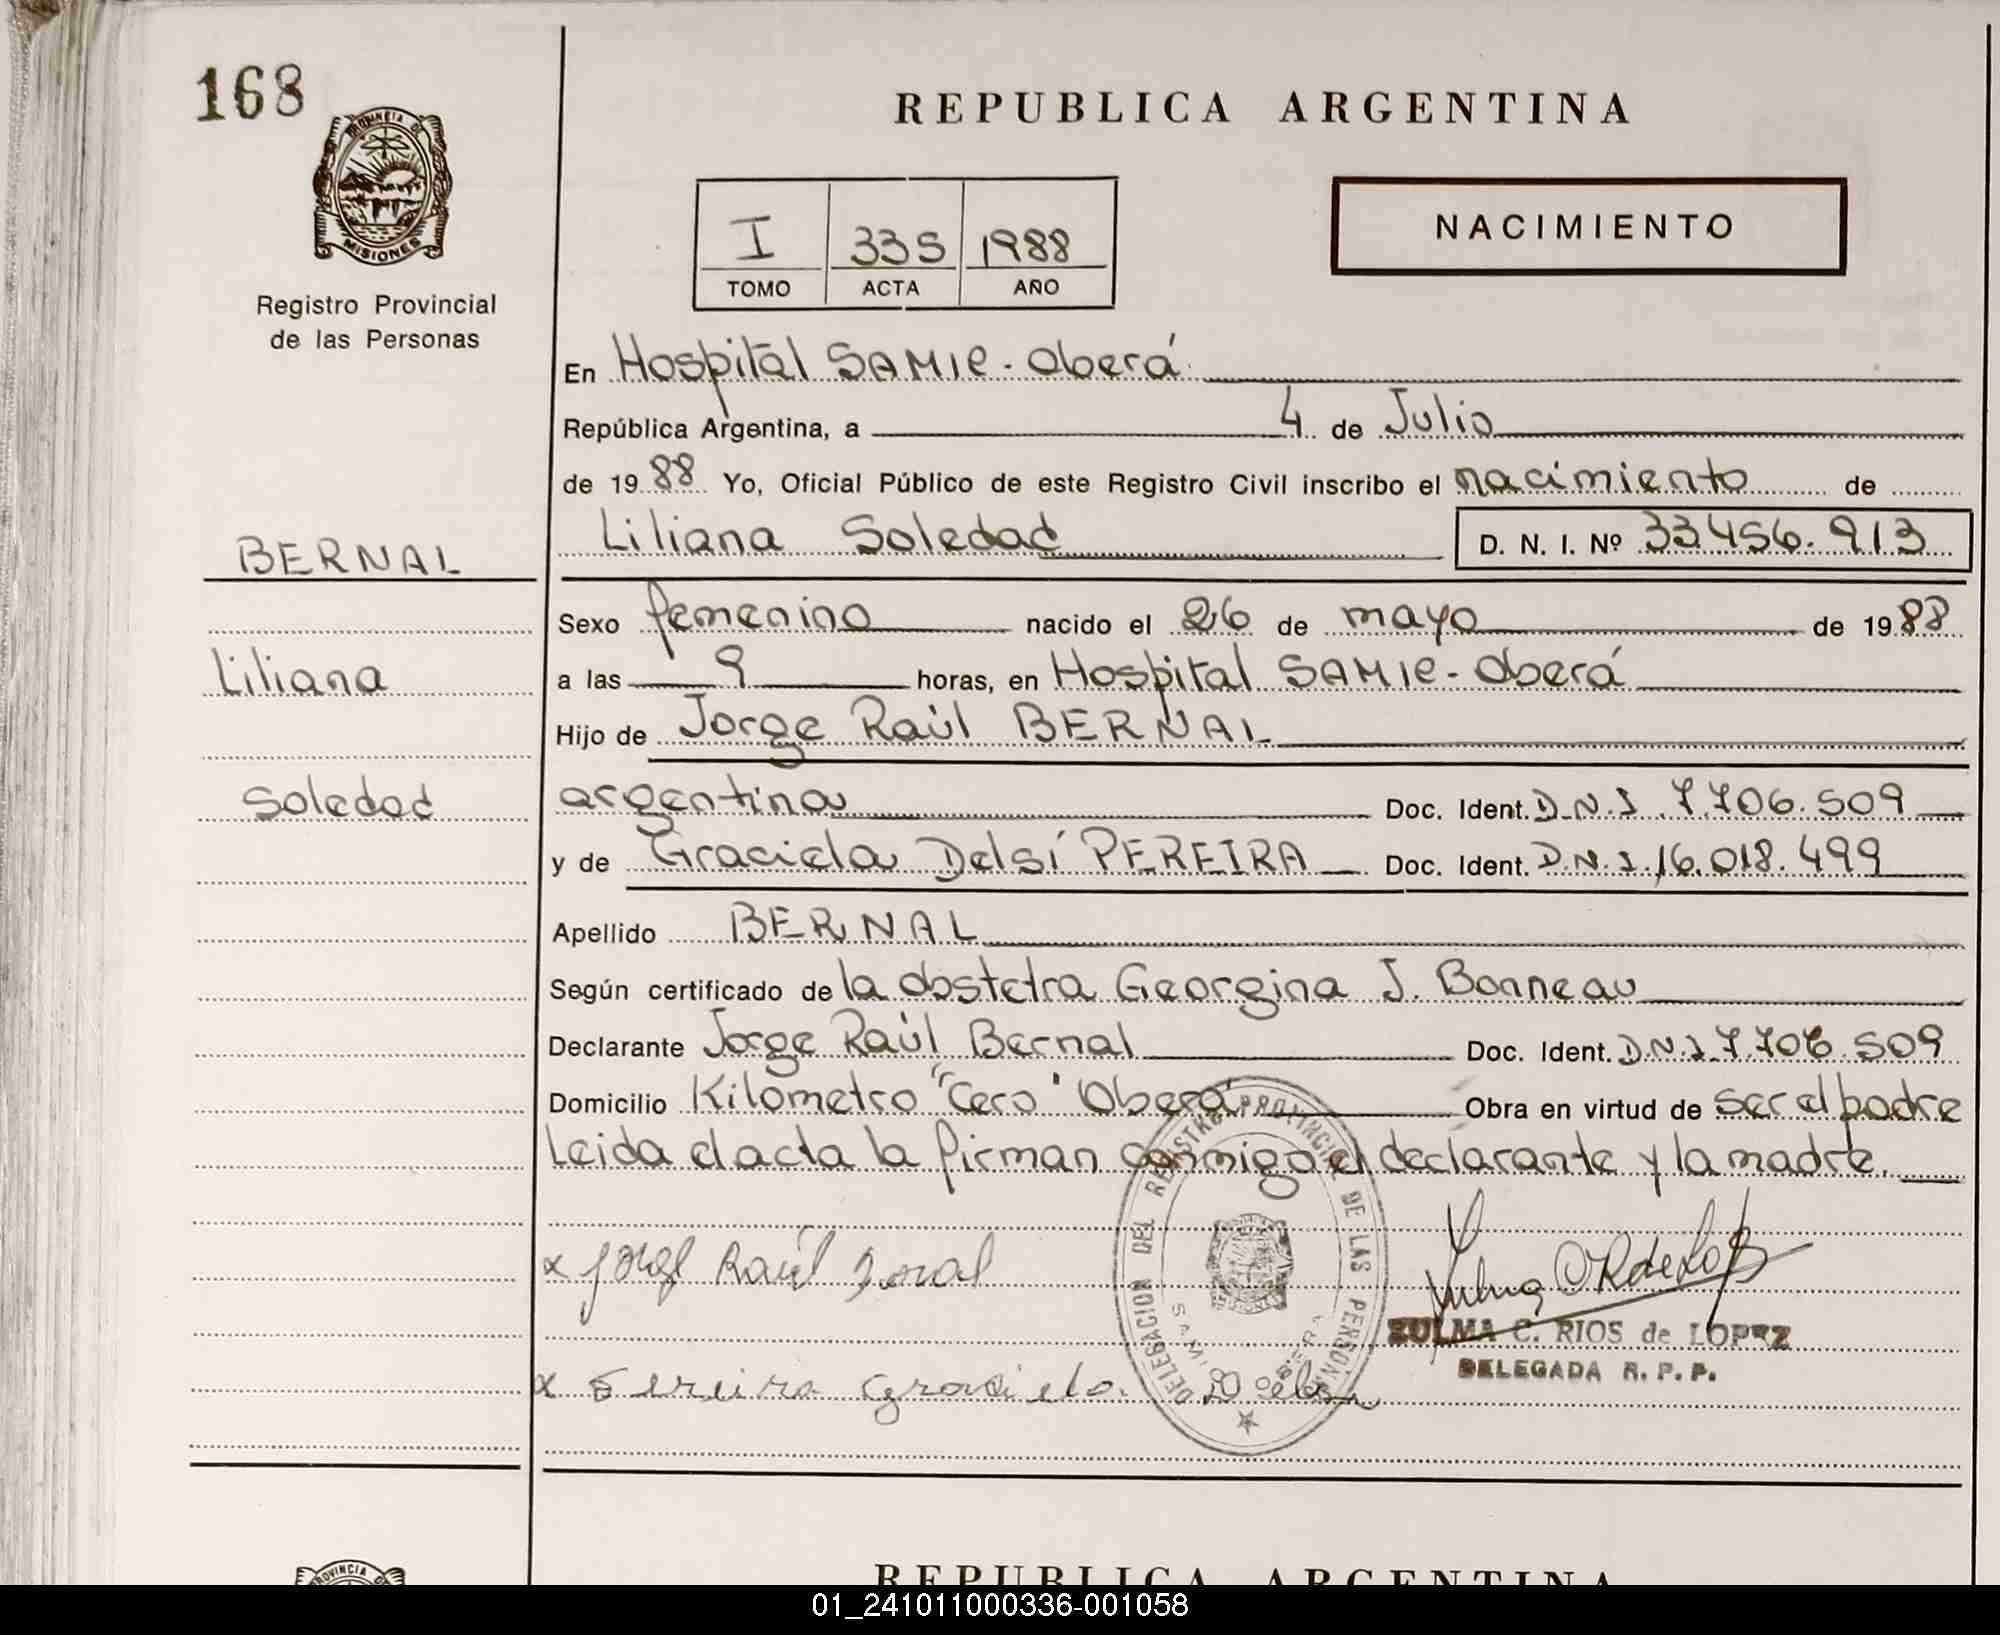 168
PROVINCIA DE
MISIONES
Registro Provincial
de las Personas
BERNAL
Liliana
Soledad
REPUBLICA ARGENTINA
I 335 1988
TOMO ACTA AÑO
NACIMIENTO
En Hospital SAMIC - Oberá
República Argentina, a 4 de Julio
de 1988 Yo, Oficial Público de este Registro Civil inscribo el nacimiento de
Liliana Soledad D. N. I. Nº 33456.913
Sexo femenino nacido el 26 de mayo de 1988
a las 9 horas, en Hospital SAMIC - Oberá
Hijo de Jorge Raúl BERNAL
argentina Doc. Ident. D.N.I. 7.706.509
y de Graciela Delsí PEREIRA Doc. Ident. D.N.I. 16.018.499
Apellido BERNAL
Según certificado de la obstetra Georgina J. Bonneau
Declarante Jorge Raúl Bernal Doc. Ident. D.N.I 7.706.509
Domicilio Kilometro "Cero" Oberá Obra en virtud de ser el padre
Leida el acta la firman conmigo el declarante y la madre.
x Jorge Raúl
x Graciela
DELEGACION DEL REGISTRO PROVINCIAL DE LAS PERSONAS
OBERA
ZULMA C. RIOS de LOPEZ
DELEGADA R. P. P.
PROVINCIA
REPUBLICA ARGENTINA
01_241011000336-001058